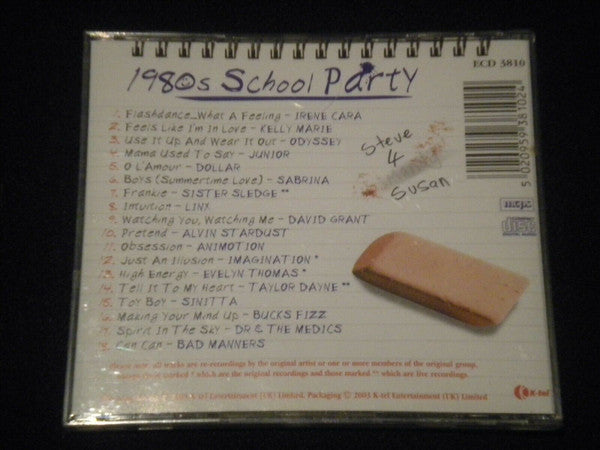 1980s School Party
ECD 3810
1. Flashdance...What A Feeling - IRENE CARA
2. Feels Like I'm In Love - KELLY MARIE
3. Use It Up And Wear It Out - ODYSSEY
4. Mama Used To Say - JUNIOR
5. O L'Amour - DOLLAR
6. Boys (Summertime Love) - SABRINA
7. Frankie - SISTER SLEDGE **
8. Intuition - LINX
9. Watching You, Watching Me - DAVID GRANT
10. Pretend - ALVIN STARDUST
11. Obsession - ANIMOTION
12. Just An Illusion - IMAGINATION *
13. High Energy - EVELYN THOMAS *
14. Tell It To My Heart - TAYLOR DAYNE **
15. Toy Boy - SINITTA
16. Making Your Mind Up - BUCKS FIZZ
17. Spirit In The Sky - DR & THE MEDICS
18. Can Can - BAD MANNERS
Steve
4
Susan
5 020959 381024
mcps
disc
DIGITAL AUDIO
Please note: all tracks are re-recordings by the original artist or one or more members of the original group,
marked * which are the original recordings and those marked ** which are live recordings.
K-tel Entertainment (UK) Limited. Packaging © 2003 K-tel Entertainment (UK) Limited
K-tel